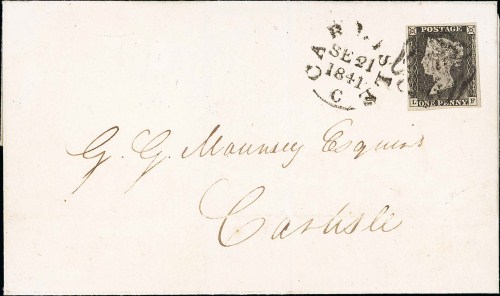 CARLISLE
SE 21
1841
C
POSTAGE
ONE PENNY
L F
G. G. Mounsey Esquire
Carlisle